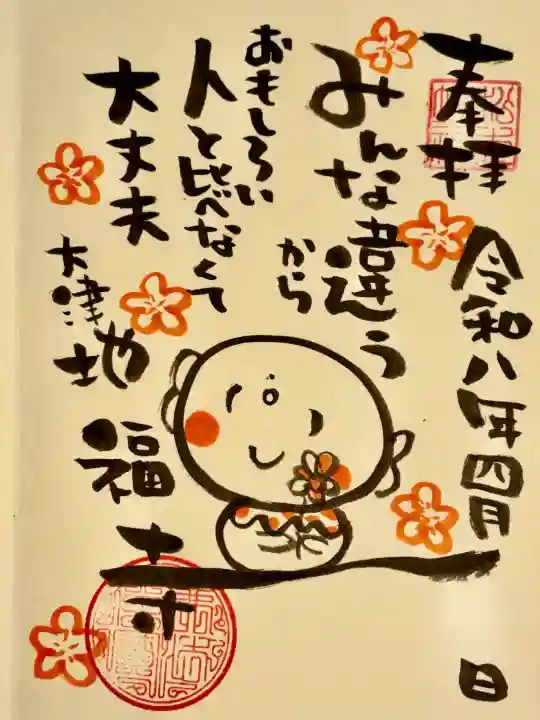 奉拝
令和八年四月
日
みんな違う
から
おもしろい
人と比べなくて
大丈夫
大津地
福寺